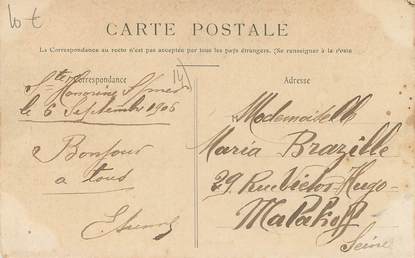 lot
CARTE POSTALE
La Correspondance au recto n'est pas acceptée par tous les pays étrangers. (Se renseigner à la Poste
Correspondance
14
Adresse
Ste Honorine
le 6 Septembre 1906
Bonjour
a tous
Mademoiselle
Maria Brazille
29 Rue Victor-Hugo
Malakoff
Seine